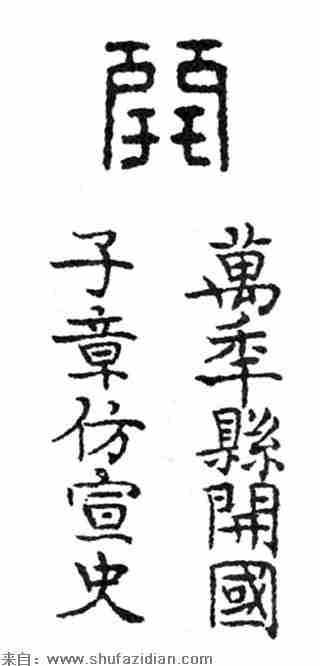 萬秊縣開國
子章仿宣史
来自：www.shufazidian.com